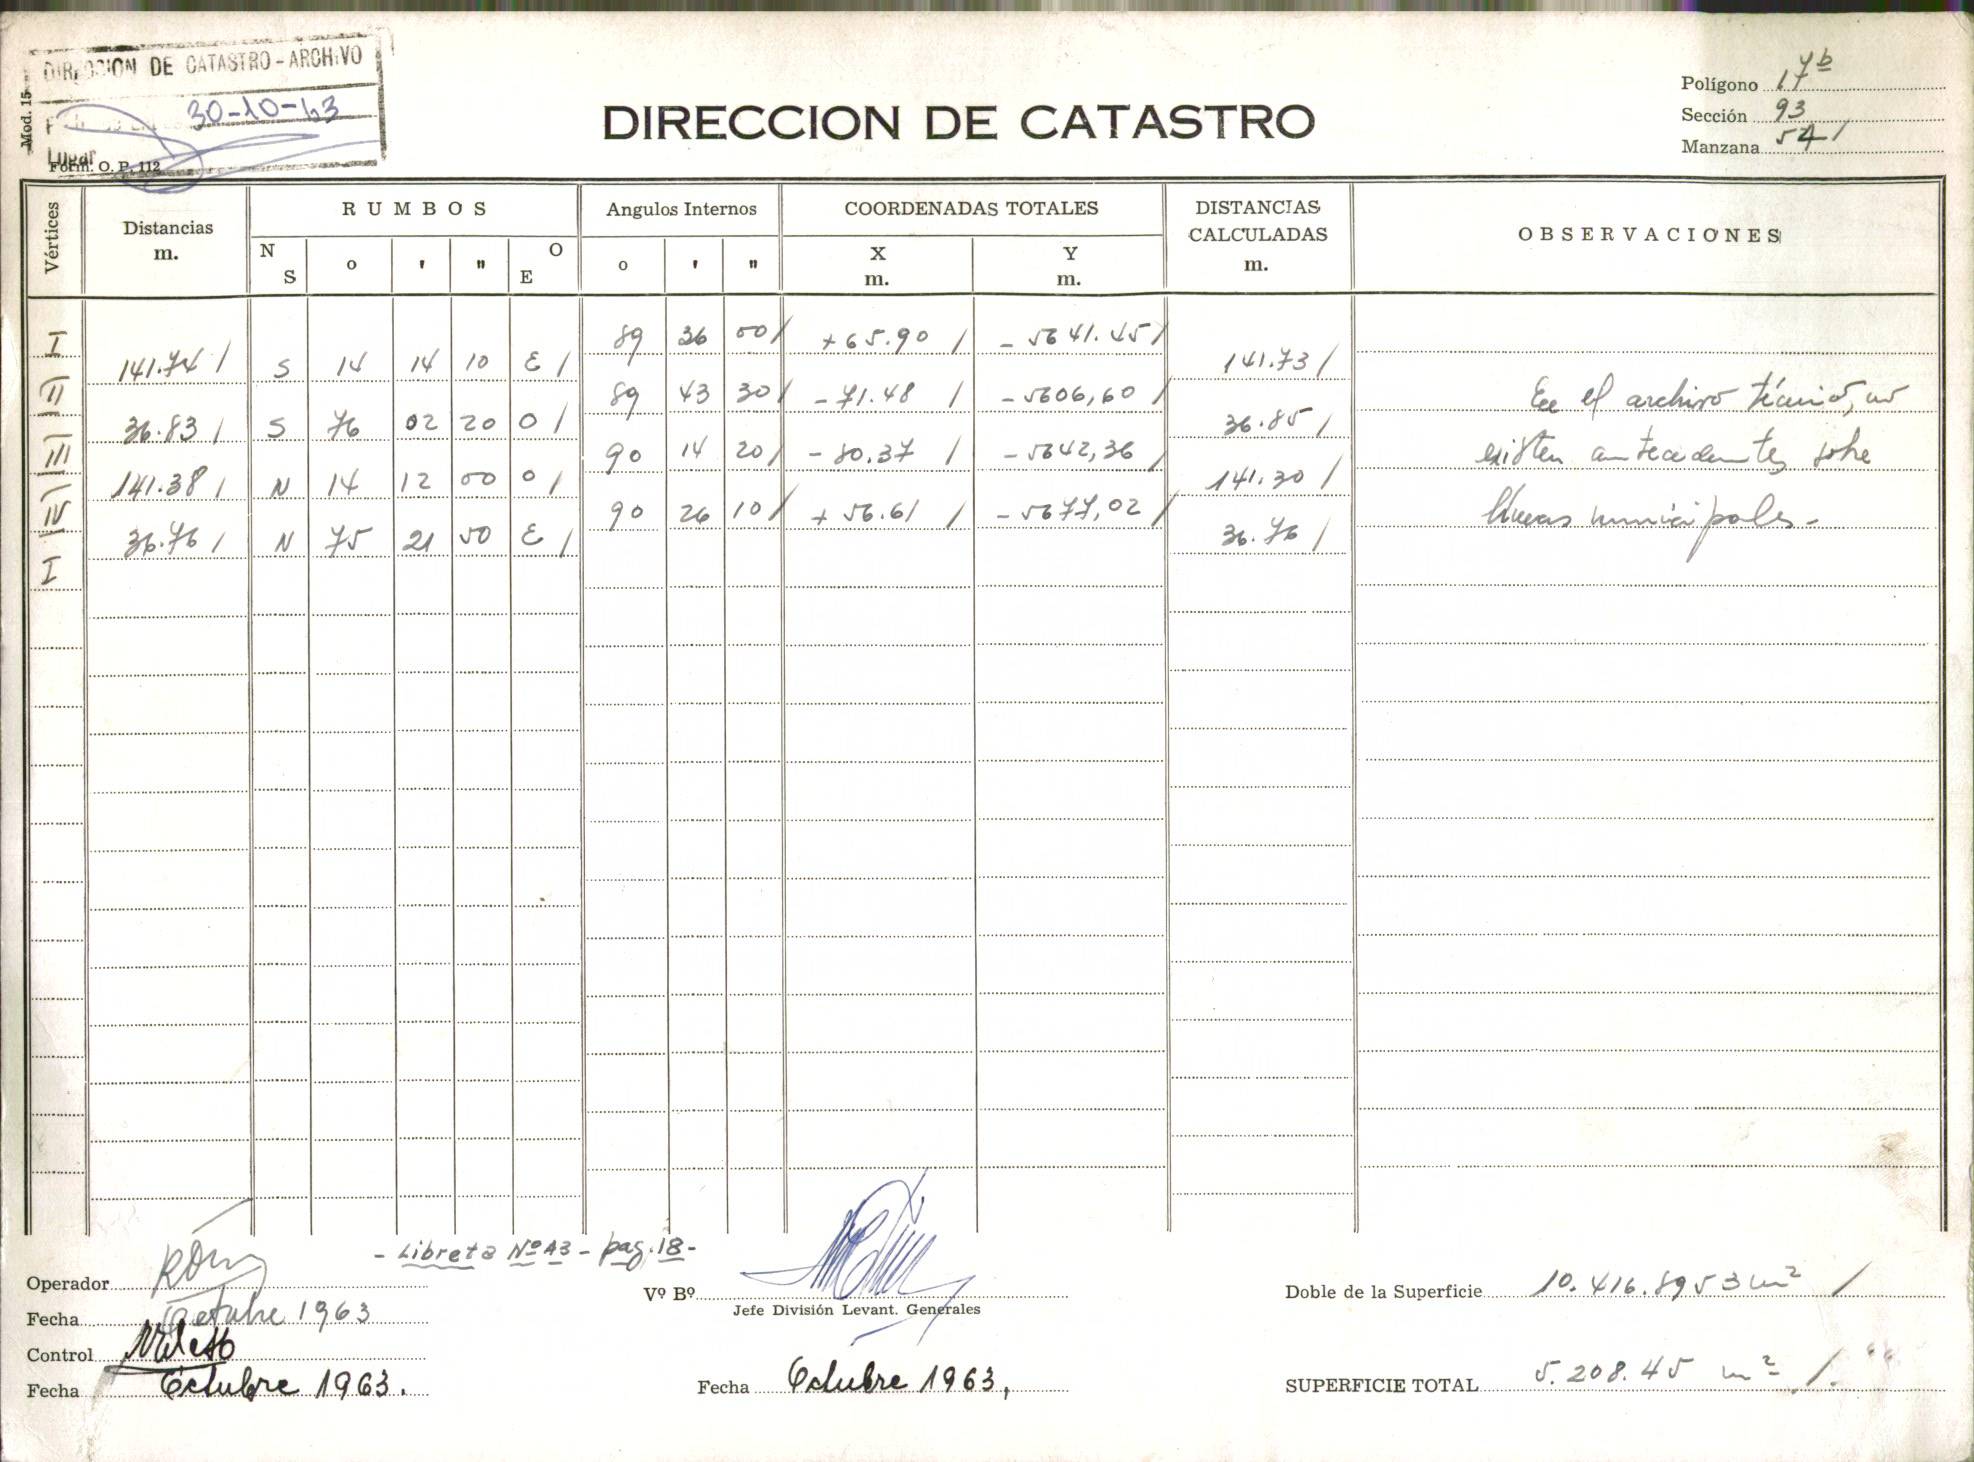 DIRECCION DE CATASTRO - ARCHIVO
30-10-63
Lugar
Mod. 15
Form. O. P. 112
DIRECCION DE CATASTRO
Polígono 17b
Sección 93
Manzana 541
Vértices
Distancias m.
RUMBOS
N S o ' " O E
Angulos Internos
o ' "
COORDENADAS TOTALES
X m. Y m.
DISTANCIAS CALCULADAS m.
OBSERVACIONES
I 89 36 00 / + 65.90 / - 5641.45 /
141.74 / S 14 14 10 E / 141.73 /
II 89 43 30 / - 71.48 / - 5606,60 /
36.83 / S 76 02 20 O / 36.85 /
III 90 14 20 / - 80.37 / - 5642,36 /
141.38 / N 14 12 00 O / 141.30 /
IV 90 26 10 / + 56.61 / - 5677,02 /
36.76 / N 75 21 50 E / 36.76 /
I
En el archivo técnico, no
existen antecedentes sobre
líneas municipales -
- Libreta Nº 43 - pag. 18 -
Operador
Fecha Octubre 1963
Control
Fecha Octubre 1963.
Vº Bº
Jefe División Levant. Generales
Fecha Octubre 1963,
Doble de la Superficie 10.416.8953 m² /
SUPERFICIE TOTAL 5.208.45 m² /.